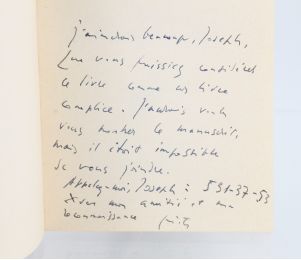 j'aimerais beaucoup, Joseph,
que vous puissiez considérer
ce livre comme un livre
complice. J'aurais voulu
vous montrer le manuscrit,
mais il était impossible
de vous joindre.
Appelez-moi, Joseph : 531-37-53
mon amitié et ma
reconnaissance